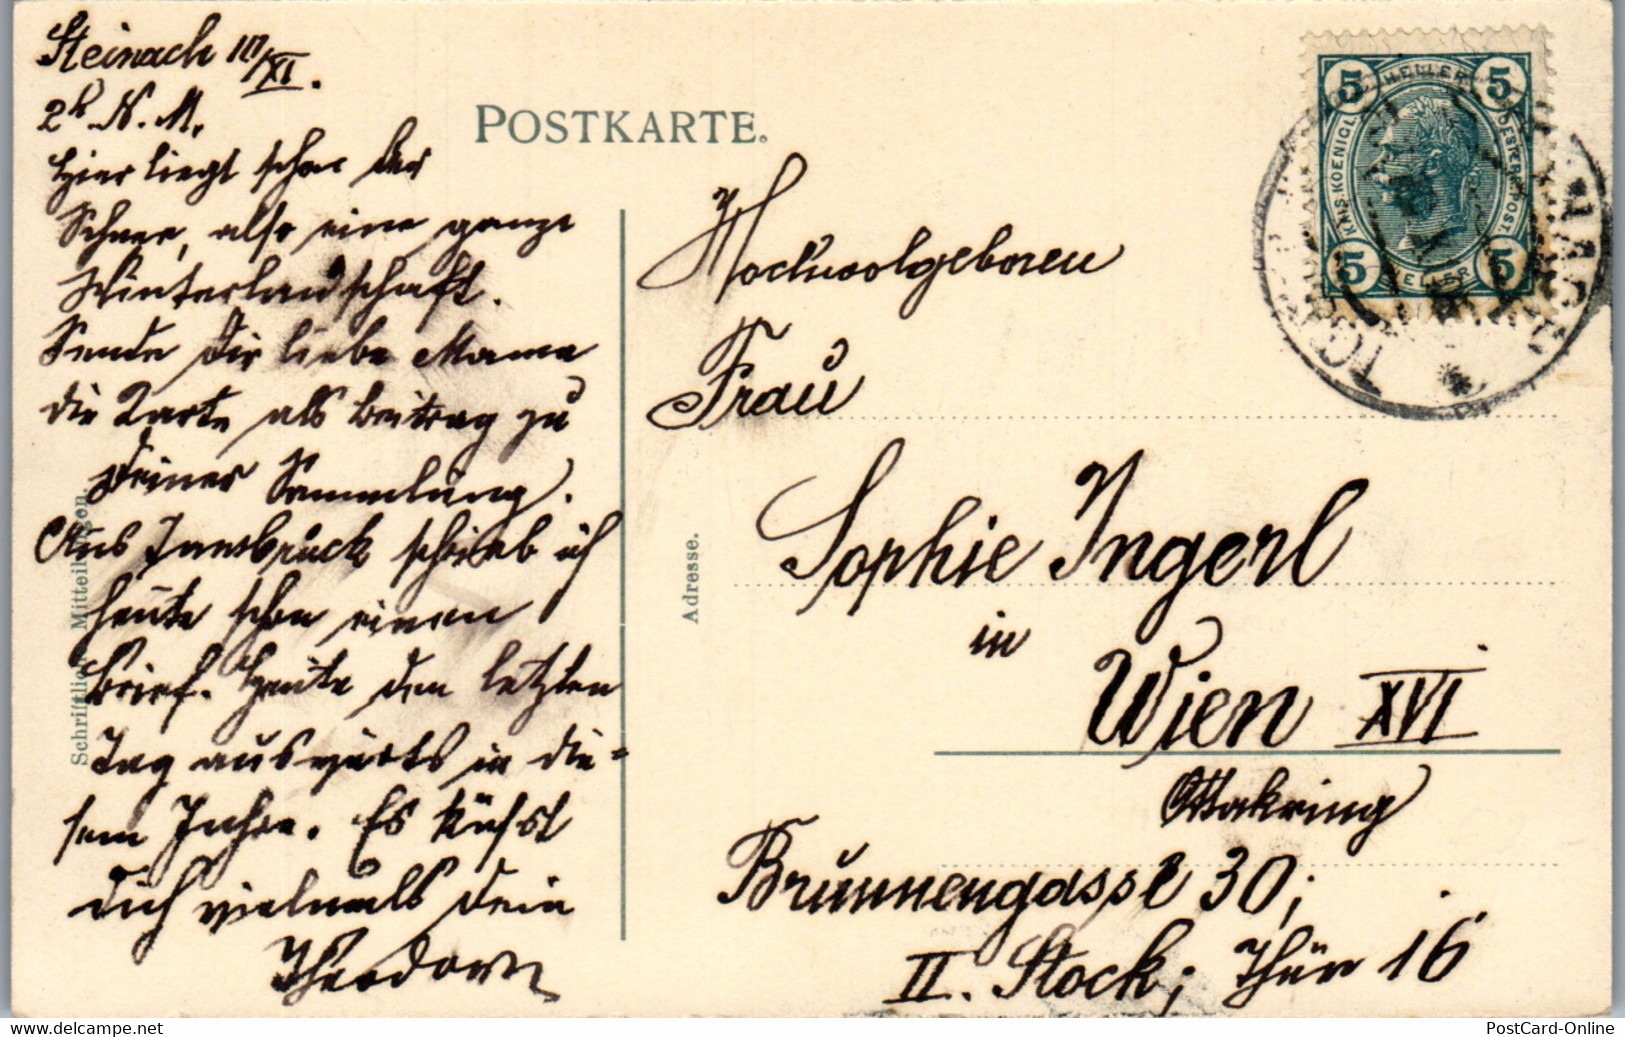 Steinach 10/XI.
2h N. M.
Hier liegt schon der
Schnee, also eine ganze
Winterlandschaft.
Sende Dir liebe Mama
die Karte als Beitrag zu
Deiner Sammlung.
Aus Innsbruck schrieb ich
heute schon einen
Brief. Heute den letzten
Tag auswärts in die-
sem Jahre. Es küßt
Dich vielmals Dein
Theodor
Schriftliche Mitteilungen.
POSTKARTE.
Adresse.
5 HELLER 5
KAIS. KOENIGL. OESTERR. POST
5 HELLER 5
Hochwolgeboren
Frau
Sophie Ingerl
in
Wien XVI
Ottakring
Brunnengasse 30;
II. Stock; Thür 16
PostCard-Online
www.delcampe.net